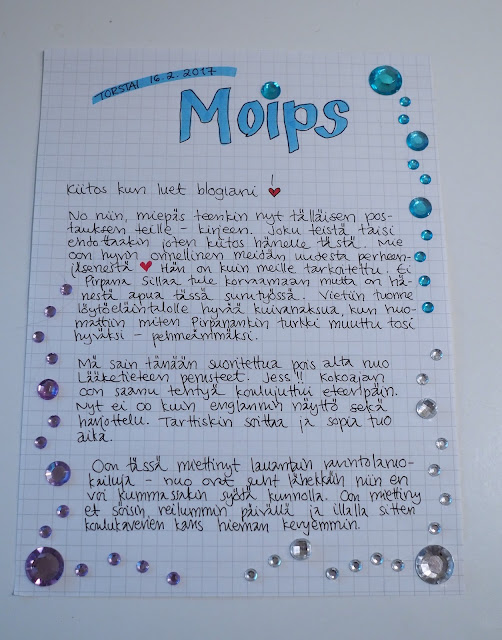 TORSTAI 16.2.2017
Moips
Kiitos kun luet blogiani
No niin, miepäs teenkin nyt tälläisen pos-
tauksen teille - kirjeen. Joku teistä taisi
ehdottaakin joten kiitos hänelle tästä. Mie
oon hyvin onnellinen meidän uudesta perheen-
jäsenestä Hän on kuin meille tarkoitettu. Ei
Pirpana Sillaa tule korvaamaan mutta on hä-
nestä apua tässä surutyössä. Vietiin tuonne
löytöeläintalolle hyvää kuivanaksua, kun huo-
mattiin miten Pirpanankin turkki muuttu tosi
hyväksi - pehmeämmäksi.
Mä sain tänään suoritettua pois alta nuo
Lääketieteen perusteet. Jess!! Kokoajan
oon saanu tehtyä koulujuttui eteenpäin.
Nyt ei oo kuin englannin näyttö sekä
harjottelu. Tarttiskin soittaa ja sopia tuo
aika.
Oon tässä miettinyt lauantain ravintolaruo-
kailuja - nuo ovat sunt lähekkäin niin en
voi kummassakin syödä kunnolla. Oon miettiny
et söisin reilummin päivällä ja illalla sitten
koulukaverien kans hieman kevyemmin.